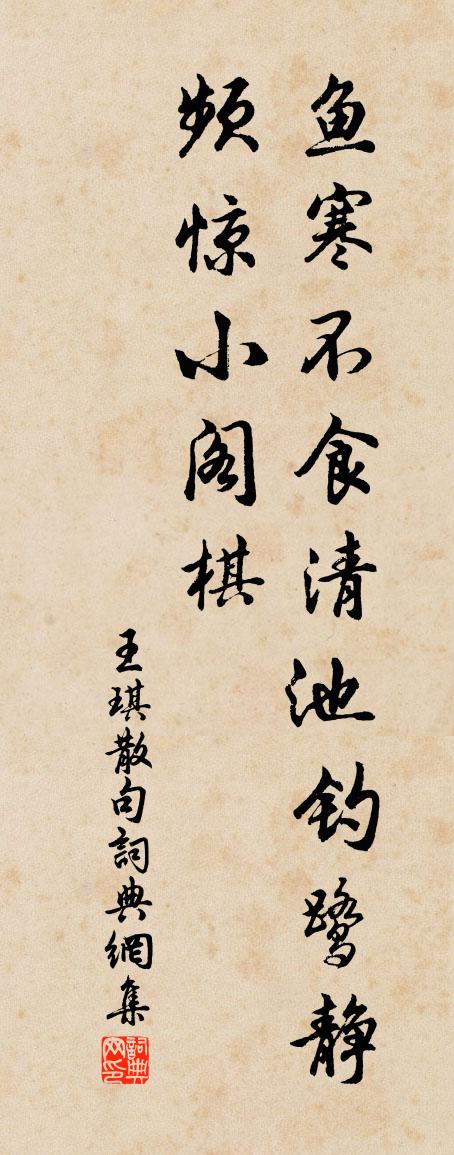 鱼寒不食清池钓鹭静
频惊小阁棋
王琪散句詞典網集
詞典网印